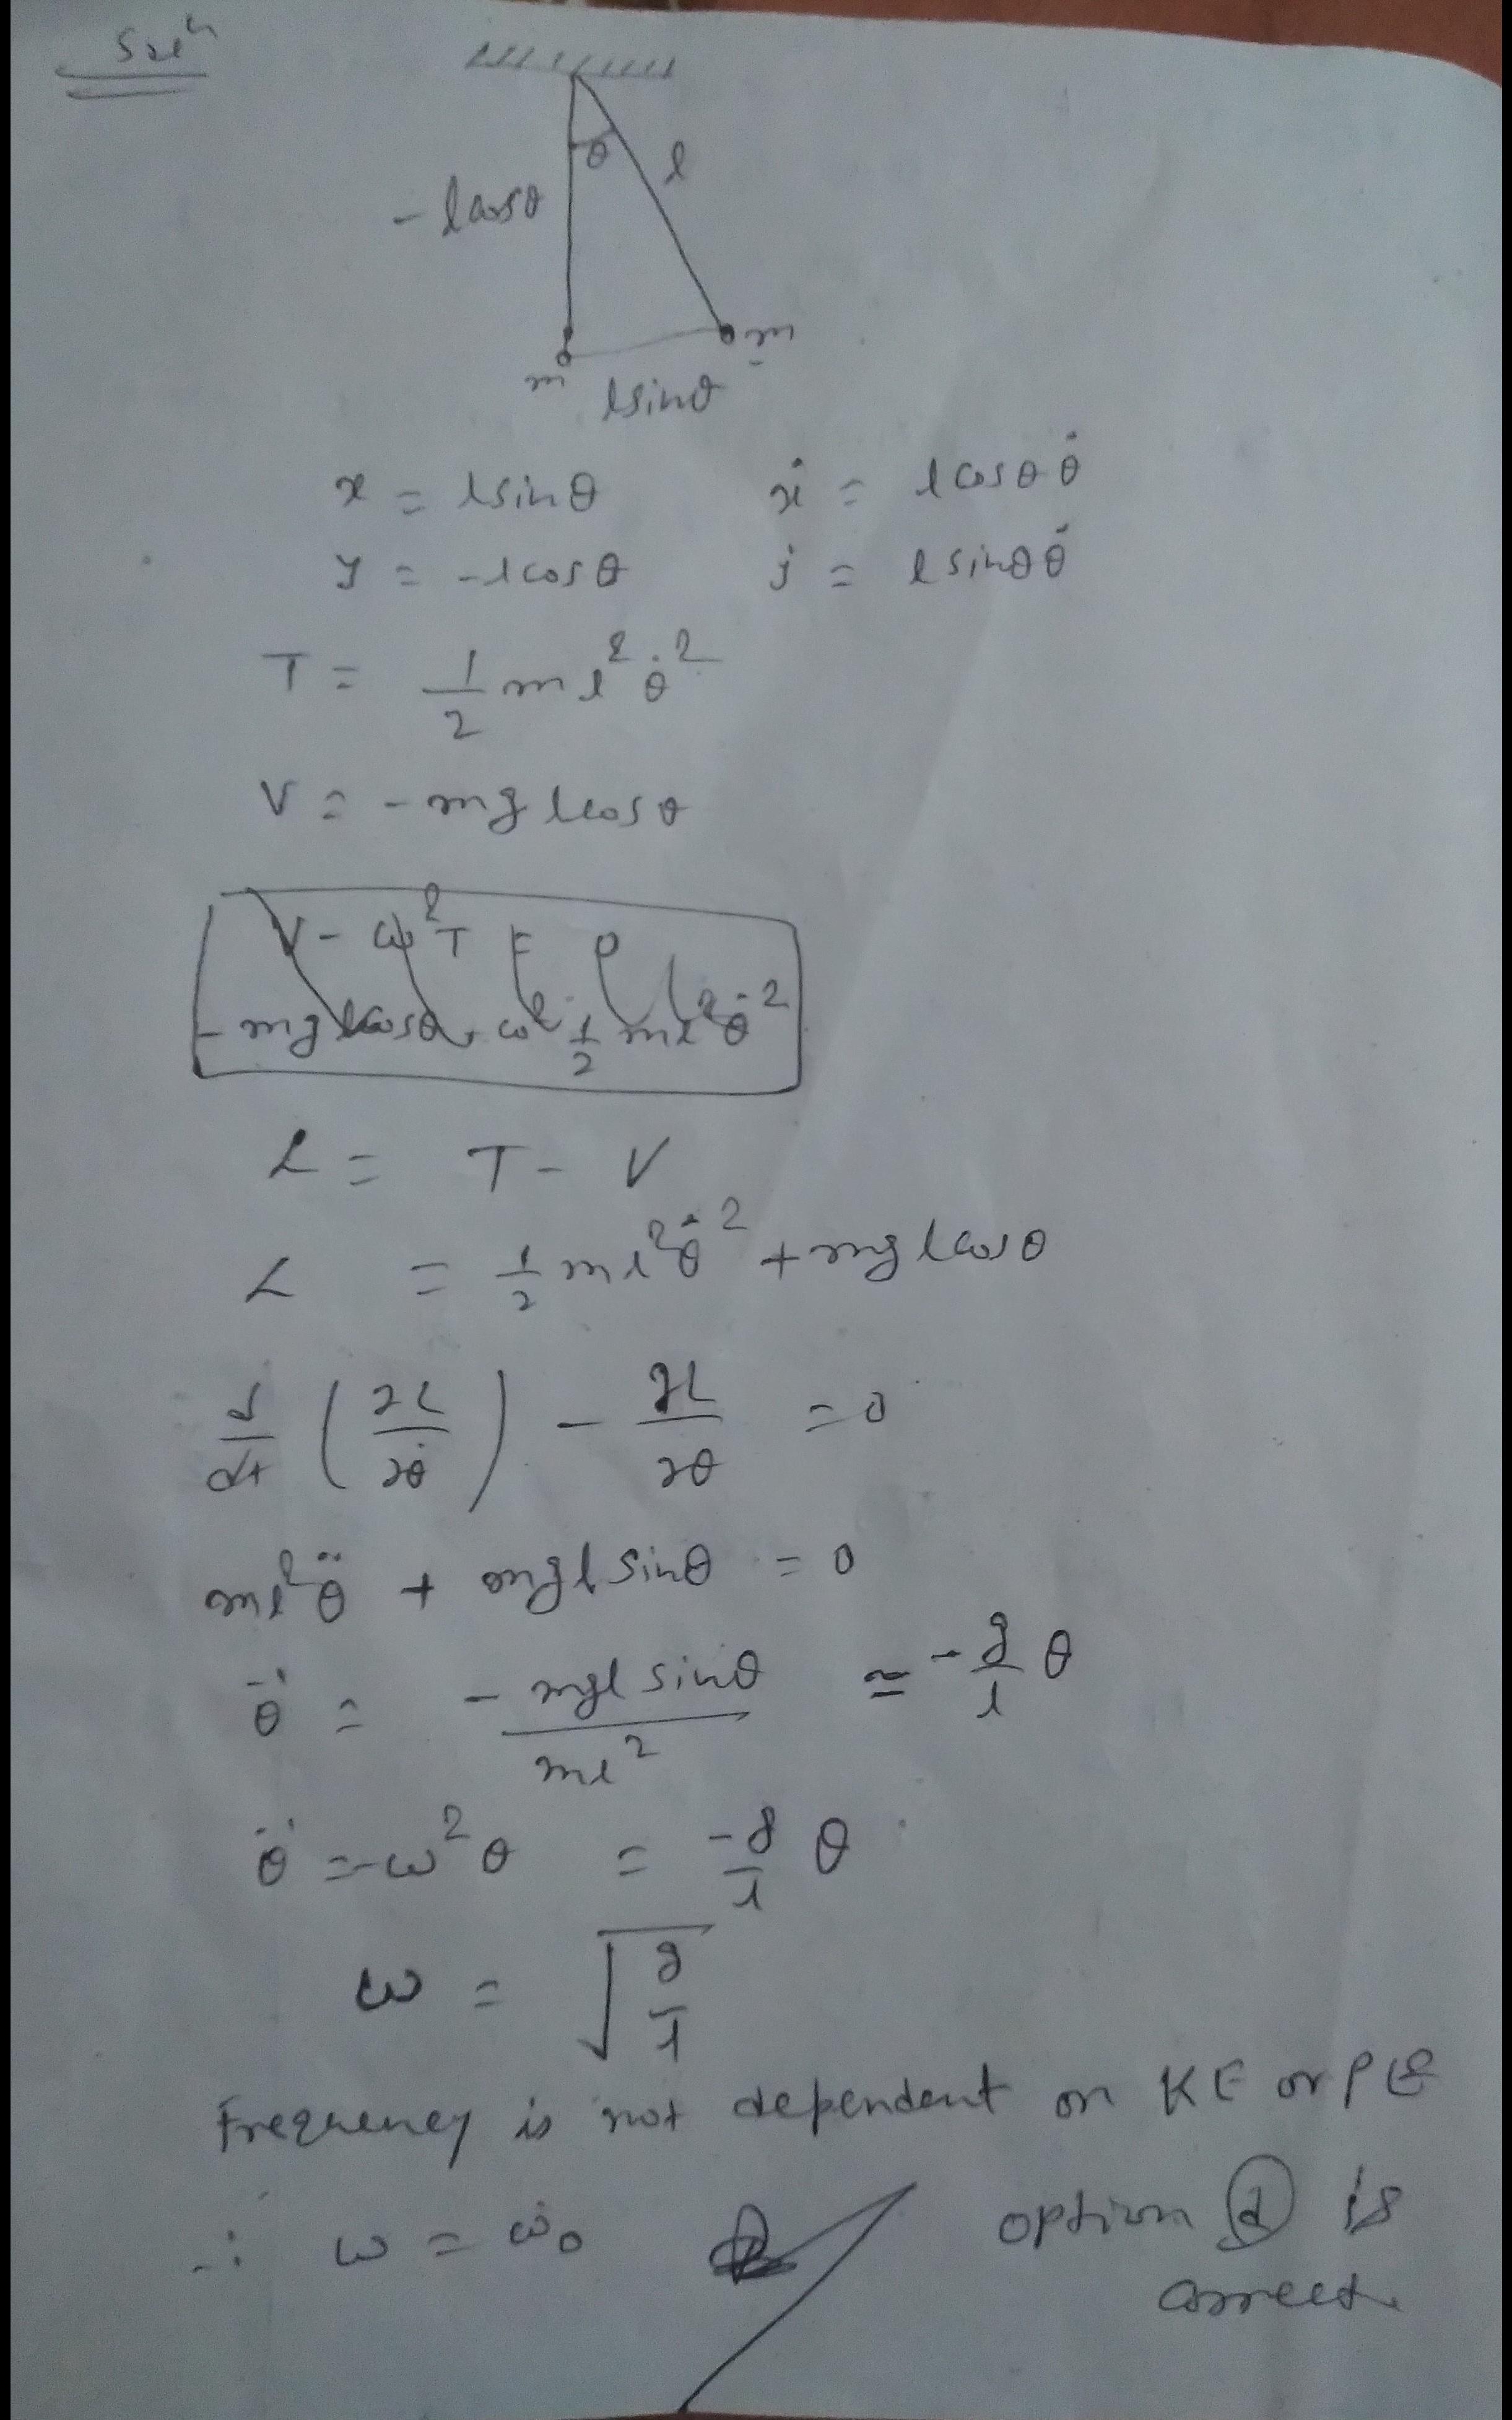 Solⁿ
θ l
- lcosθ
m m
lsinθ
x = lsinθ ẋ = lcosθ θ̇
y = -lcosθ ẏ = lsinθ θ̇
T = 1/2 ml²θ̇²
V = -mglcosθ
V - ω²T = 0
- mglcosθ, ω² 1/2 ml²θ̇²
L = T - V
L = 1/2 ml²θ̇² + mglcosθ
d/dt (∂L/∂θ̇) - ∂L/∂θ = 0
ml²θ̈ + mgl sinθ = 0
θ̈ = - mgl sinθ / ml² ≃ - g/l θ
θ̈ = -ω²θ = -g/l θ
ω = √(g/l)
Frequency is not dependent on KE or PE
∴ ω = ω₀ option (d) is
correct.